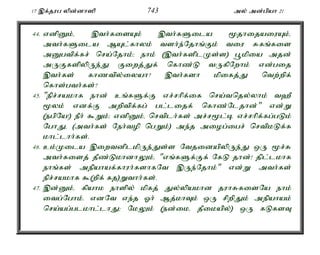 17 இக்தரப லின்னாஸி 743 அல் அன்பியா 21
44. எனினும், இவர்களையும் இவர்களுடைய மூதாதையரையும்,
அவர்களுடைய ஆயுட்காலம் வளர்ந்தோங்கும் வரை சுகங்களை
அனுபவிக்கச் செய்தோம்; நாம் (இவர்களிடமுள்ள) பூமியை அதன்
அருகுகளிலிருந்து குறைத்துக் கொண்டு வருகிறோம் என்பதை
இவர்கள் காணவில்லையா? இவர்களா மிகைத்து வெற்றிக்
கொள்பவர்கள்?
45. "நிச்சயமாக நான் உங்களுக்கு எச்சரிக்கை செய்வதெல்லாம் வஹீ
மூலம் எனக்கு அறிவிக்கப் பட்டதைக் கொண்டேதான்" என்று
(நபியே!) நீர் கூறும்; எனினும், செவிடர்கள் அச்சமூட்டி எச்சரிக்கப்படும்
போது, (அவர்கள் நேர்வழி பெறும்) அந்த அழைப்பைச் செவிமடுக்க
மாட்டார்கள்.
46. உம்முடைய இறைவனிடமிருந்துள்ள வேதனையிலிருந்து ஒரு மூச்சு
அவர்களைத் தீண்டுமானாலும், "எங்களுக்குக் கேடு தான்! திட்டமாக
நாங்கள் அநியாயக்காரர்களாகவே இருந்தோம்" என்று அவர்கள்
நிச்சயமாக கூ(றிக் கத)றுவார்கள்.
47. இன்னும், கியாம நாளில் மிகத் துல்லியமான தராசுகளையே நாம்
வைப்போம். எனவே எந்த ஓர் ஆத்மாவும் ஒரு சிறிதும் அநியாயம்
செய்யப்படமாட்டாது; மேலும் (நன்மை, தீமையில்) ஒரு கடுகளவு